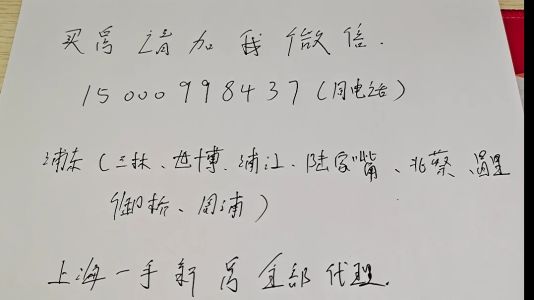 买房请加我微信.
15000998437(同电话)
浦东(三林、世博、浦江、陆家嘴、北蔡、
御桥、周浦)
上海一手新房全部代理.